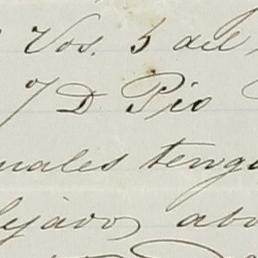 Vos. 5 del
7 D. Pio
uales teng
lejado, abo